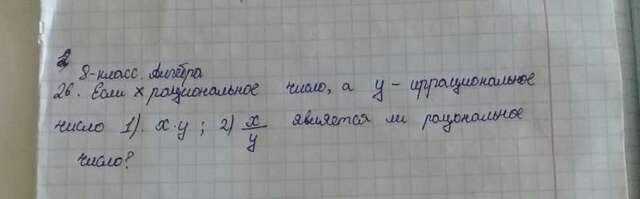 2
8-класс. Алгебра
26. Если x рациональное число, а y - иррациональное
число 1). x·y ; 2) x/y является ли рациональное
число?